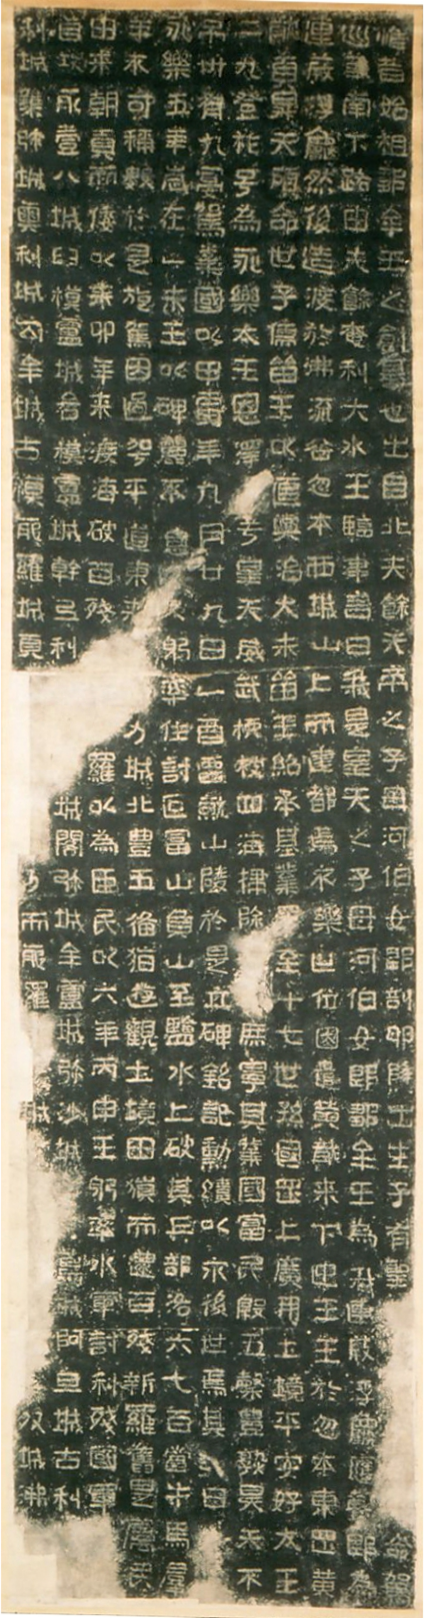 惟昔始祖鄒牟王之創基也出自北夫餘天帝之子母河伯女郎剖卵降世生子有聖命駕
巡幸南下路由夫餘奄利大水王臨津言曰我是皇天之子母河伯女郎鄒牟王為我連葭浮龜應聲即為
連葭浮龜然後造渡於沸流谷忽本西城山上而建都焉永樂世位因遣黃龍來下迎王王於忽本東岡黃
龍負昇天顧命世子儒留王以道興治大朱留王紹承基業至十七世孫國岡上廣開土境平安好太王
二九登祚号為永樂太王恩澤于皇天威武振被四海掃除庶寧其業國富民殷五穀豊熟昊天不
弔卅有九寔駕棄國以甲寅年九月廿九日乙酉遷就山陵於是立碑銘記勳績以永後世焉其詞曰
永樂五年歲在乙未王以碑麗不息躬率住討叵富山負山至鹽水上破其丘部洛六七百當牛馬群
羊不可稱數於是旋駕因過平道東來力城北豊五備猶遊觀土境田獵而還百殘新羅舊是屬民
由來朝貢而倭以耒卯年來渡海破百殘羅以為臣民以六年丙申王躬率水軍討利殘國軍
首攻壹八城臼模盧城各模盧城幹弖利城閣弥城牟盧城弥沙城蔦城阿旦城古利
利城雜弥城奧利城勾牟城古須耶羅城頁而耶羅城城